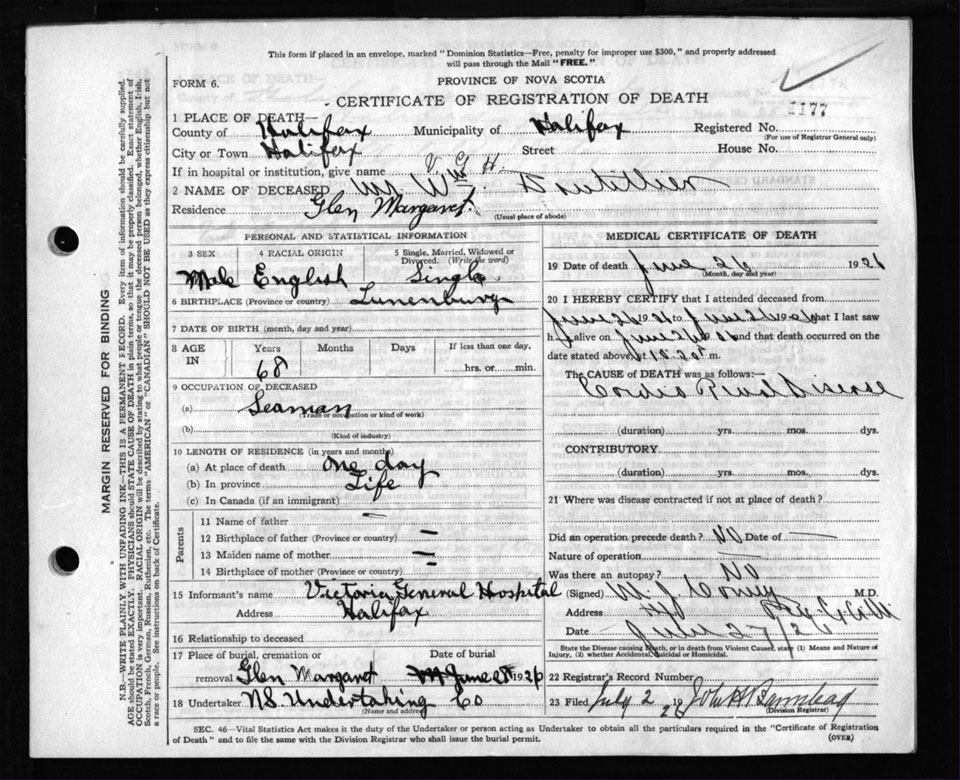 This form if placed in an envelope, marked "Dominion Statistics—Free, penalty for improper use $300," and properly addressed
will pass through the Mail "FREE."
FORM 6.
PROVINCE OF NOVA SCOTIA
CERTIFICATE OF REGISTRATION OF DEATH
1 PLACE OF DEATH—
County of Halifax Municipality of Halifax Registered No. 1177
(For use of Registrar General only)
City or Town Halifax Street House No.
If in hospital or institution, give name V G H
2 NAME OF DECEASED Mr Wm
Residence Glen Margaret
(Usual place of abode)
PERSONAL AND STATISTICAL INFORMATION
3 SEX 4 RACIAL ORIGIN 5 Single, Married, Widowed or
Divorced. (Write the word)
Male English Single
6 BIRTHPLACE (Province or country) Lunenburg
7 DATE OF BIRTH (month, day and year)
8 AGE IN Years Months Days If less than one day,
68 hrs. or min.
9 OCCUPATION OF DECEASED
(a) Seaman
(Trade or occupation or kind of work)
(b)
(Kind of industry)
10 LENGTH OF RESIDENCE (in years and months)
(a) At place of death one day
(b) In province Life
(c) In Canada (if an immigrant)
Parents
11 Name of father —
12 Birthplace of father (Province or country) —
13 Maiden name of mother —
14 Birthplace of mother (Province or country) —
15 Informant's name Victoria General Hospital
Address Halifax
16 Relationship to deceased
17 Place of burial, cremation or Date of burial
removal Glen Margaret June 28 1926
18 Undertaker NS Undertaking Co
(Name and address)
MEDICAL CERTIFICATE OF DEATH
19 Date of death June 26 1926
(Month, day and year)
20 I HEREBY CERTIFY that I attended deceased from
to that I last saw
h alive on and that death occurred on the
date stated above, at m.
The CAUSE OF DEATH was as follows:—
Cardio Renal Disease
(duration) yrs. mos. dys.
CONTRIBUTORY
(duration) yrs. mos. dys.
21 Where was disease contracted if not at place of death?
Did an operation precede death? No Date of —
Nature of operation —
Was there an autopsy? No
(Signed) M.D.
Address
Date
State the Disease causing Death, or in death from Violent Causes, state (1) Means and Nature of
Injury, (2) whether Accidental, Suicidal or Homicidal.
22 Registrar's Record Number
23 Filed July 2 19
(Division Registrar)
SEC. 46—Vital Statistics Act makes it the duty of the Undertaker or person acting as Undertaker to obtain all the particulars required in the "Certificate of Registration
of Death" and to file the same with the Division Registrar who shall issue the burial permit.
(OVER)
MARGIN RESERVED FOR BINDING
N.B.—WRITE PLAINLY WITH UNFADING INK—THIS IS A PERMANENT RECORD. Every item of information should be carefully supplied.
AGE should be stated EXACTLY. PHYSICIANS should STATE CAUSE OF DEATH in plain terms, so that it may be properly classified. Exact statement of
OCCUPATION is very important. RACIAL ORIGIN will be described by stating to what people or tongue the deceased person belonged, whether English, Irish,
Scotch, French, German, Russian, Ruthenian, etc. The terms "AMERICAN" or "CANADIAN" SHOULD NOT BE USED as they express citizenship but not
a race or people. See instructions on back of Certificate.